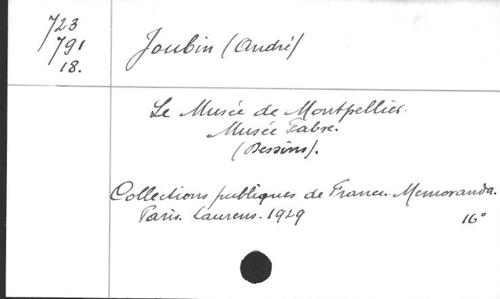 723
791
18.
Joubin (André)
Le Musée de Montpellier.
Musée Fabre.
(Dessins).
Collections publiques de France. Memoranda.
Paris. Laurens. 1929 16°